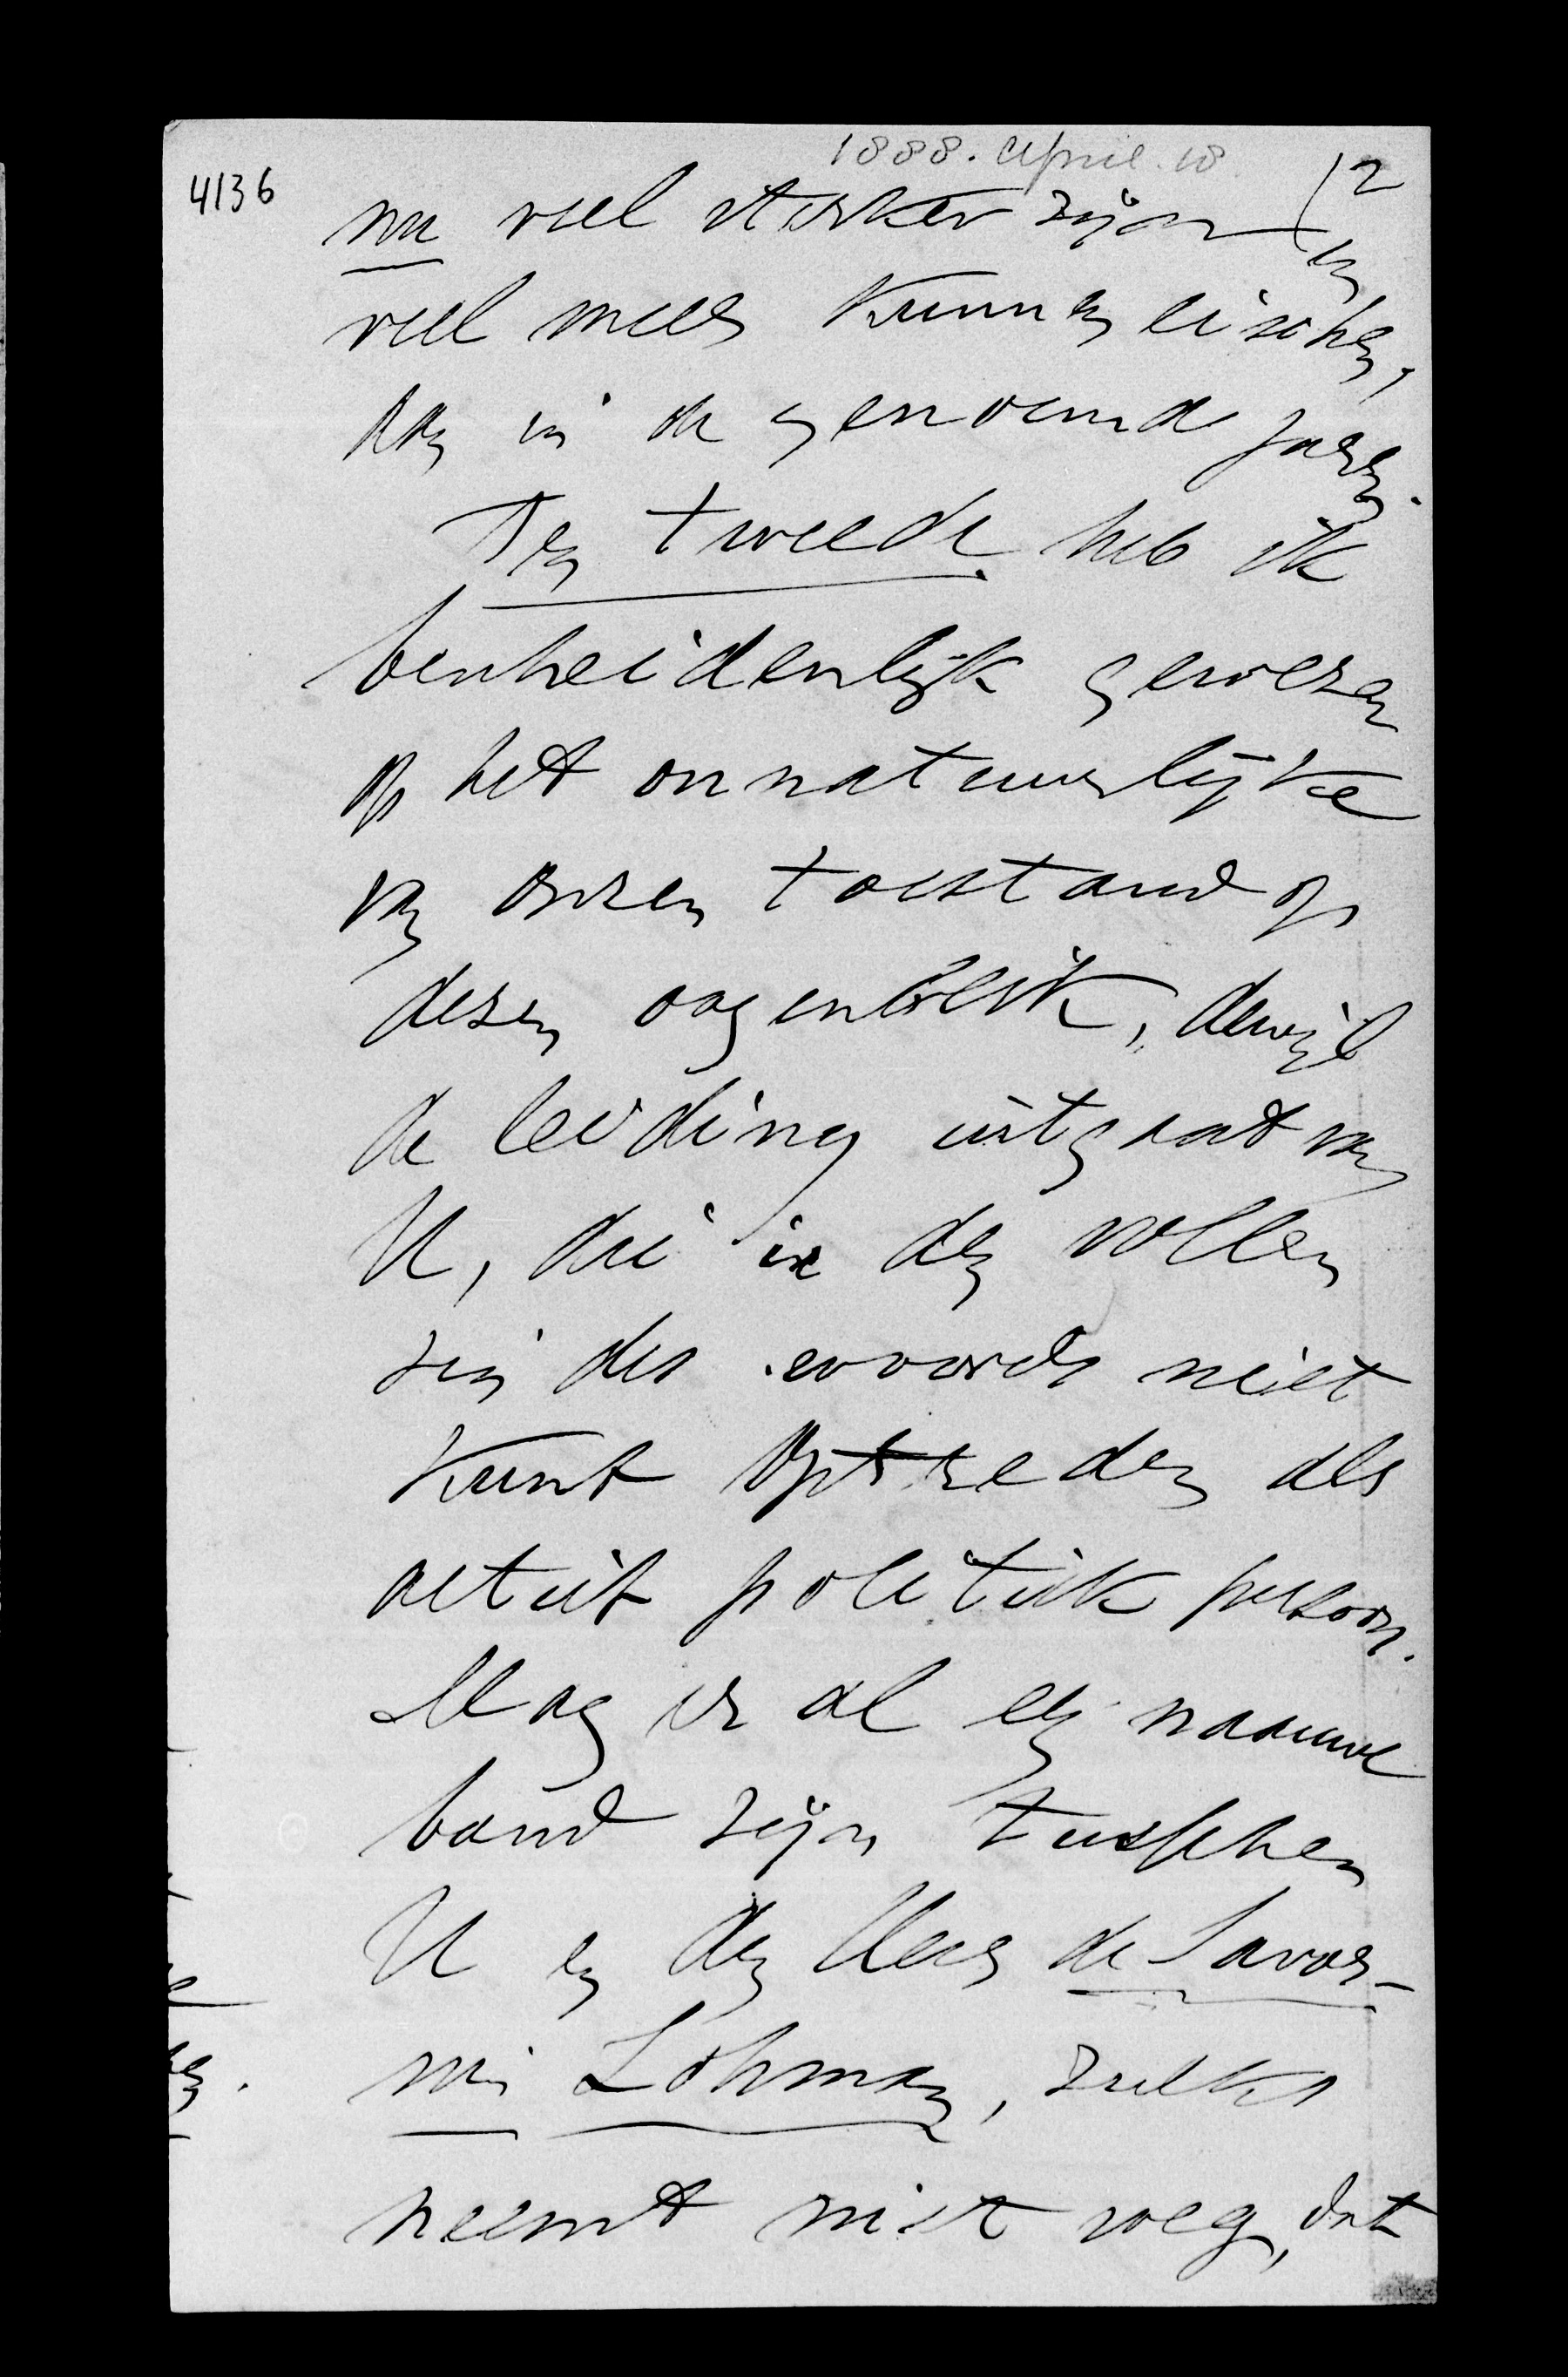 1888. April. 18.
4136
(2
nu veel sterker zijn en
veel meer kunnen eischen,
dan in de genoemde jaren.
Ten tweede heb ik
bescheidenlijk gewezen
op het onnatuurlijke
van onzen toestand op
dezen oogenblik, dewijl
de leiding uitgaat van
U, die in den vollen
zin des woords niet
kunt optreden als
actief politiek persoon.
Mag er al een naauwe
band zijn tusschen
U en den Heer de Savor-
nin Lohman, zulks
neemt niet weg, dat